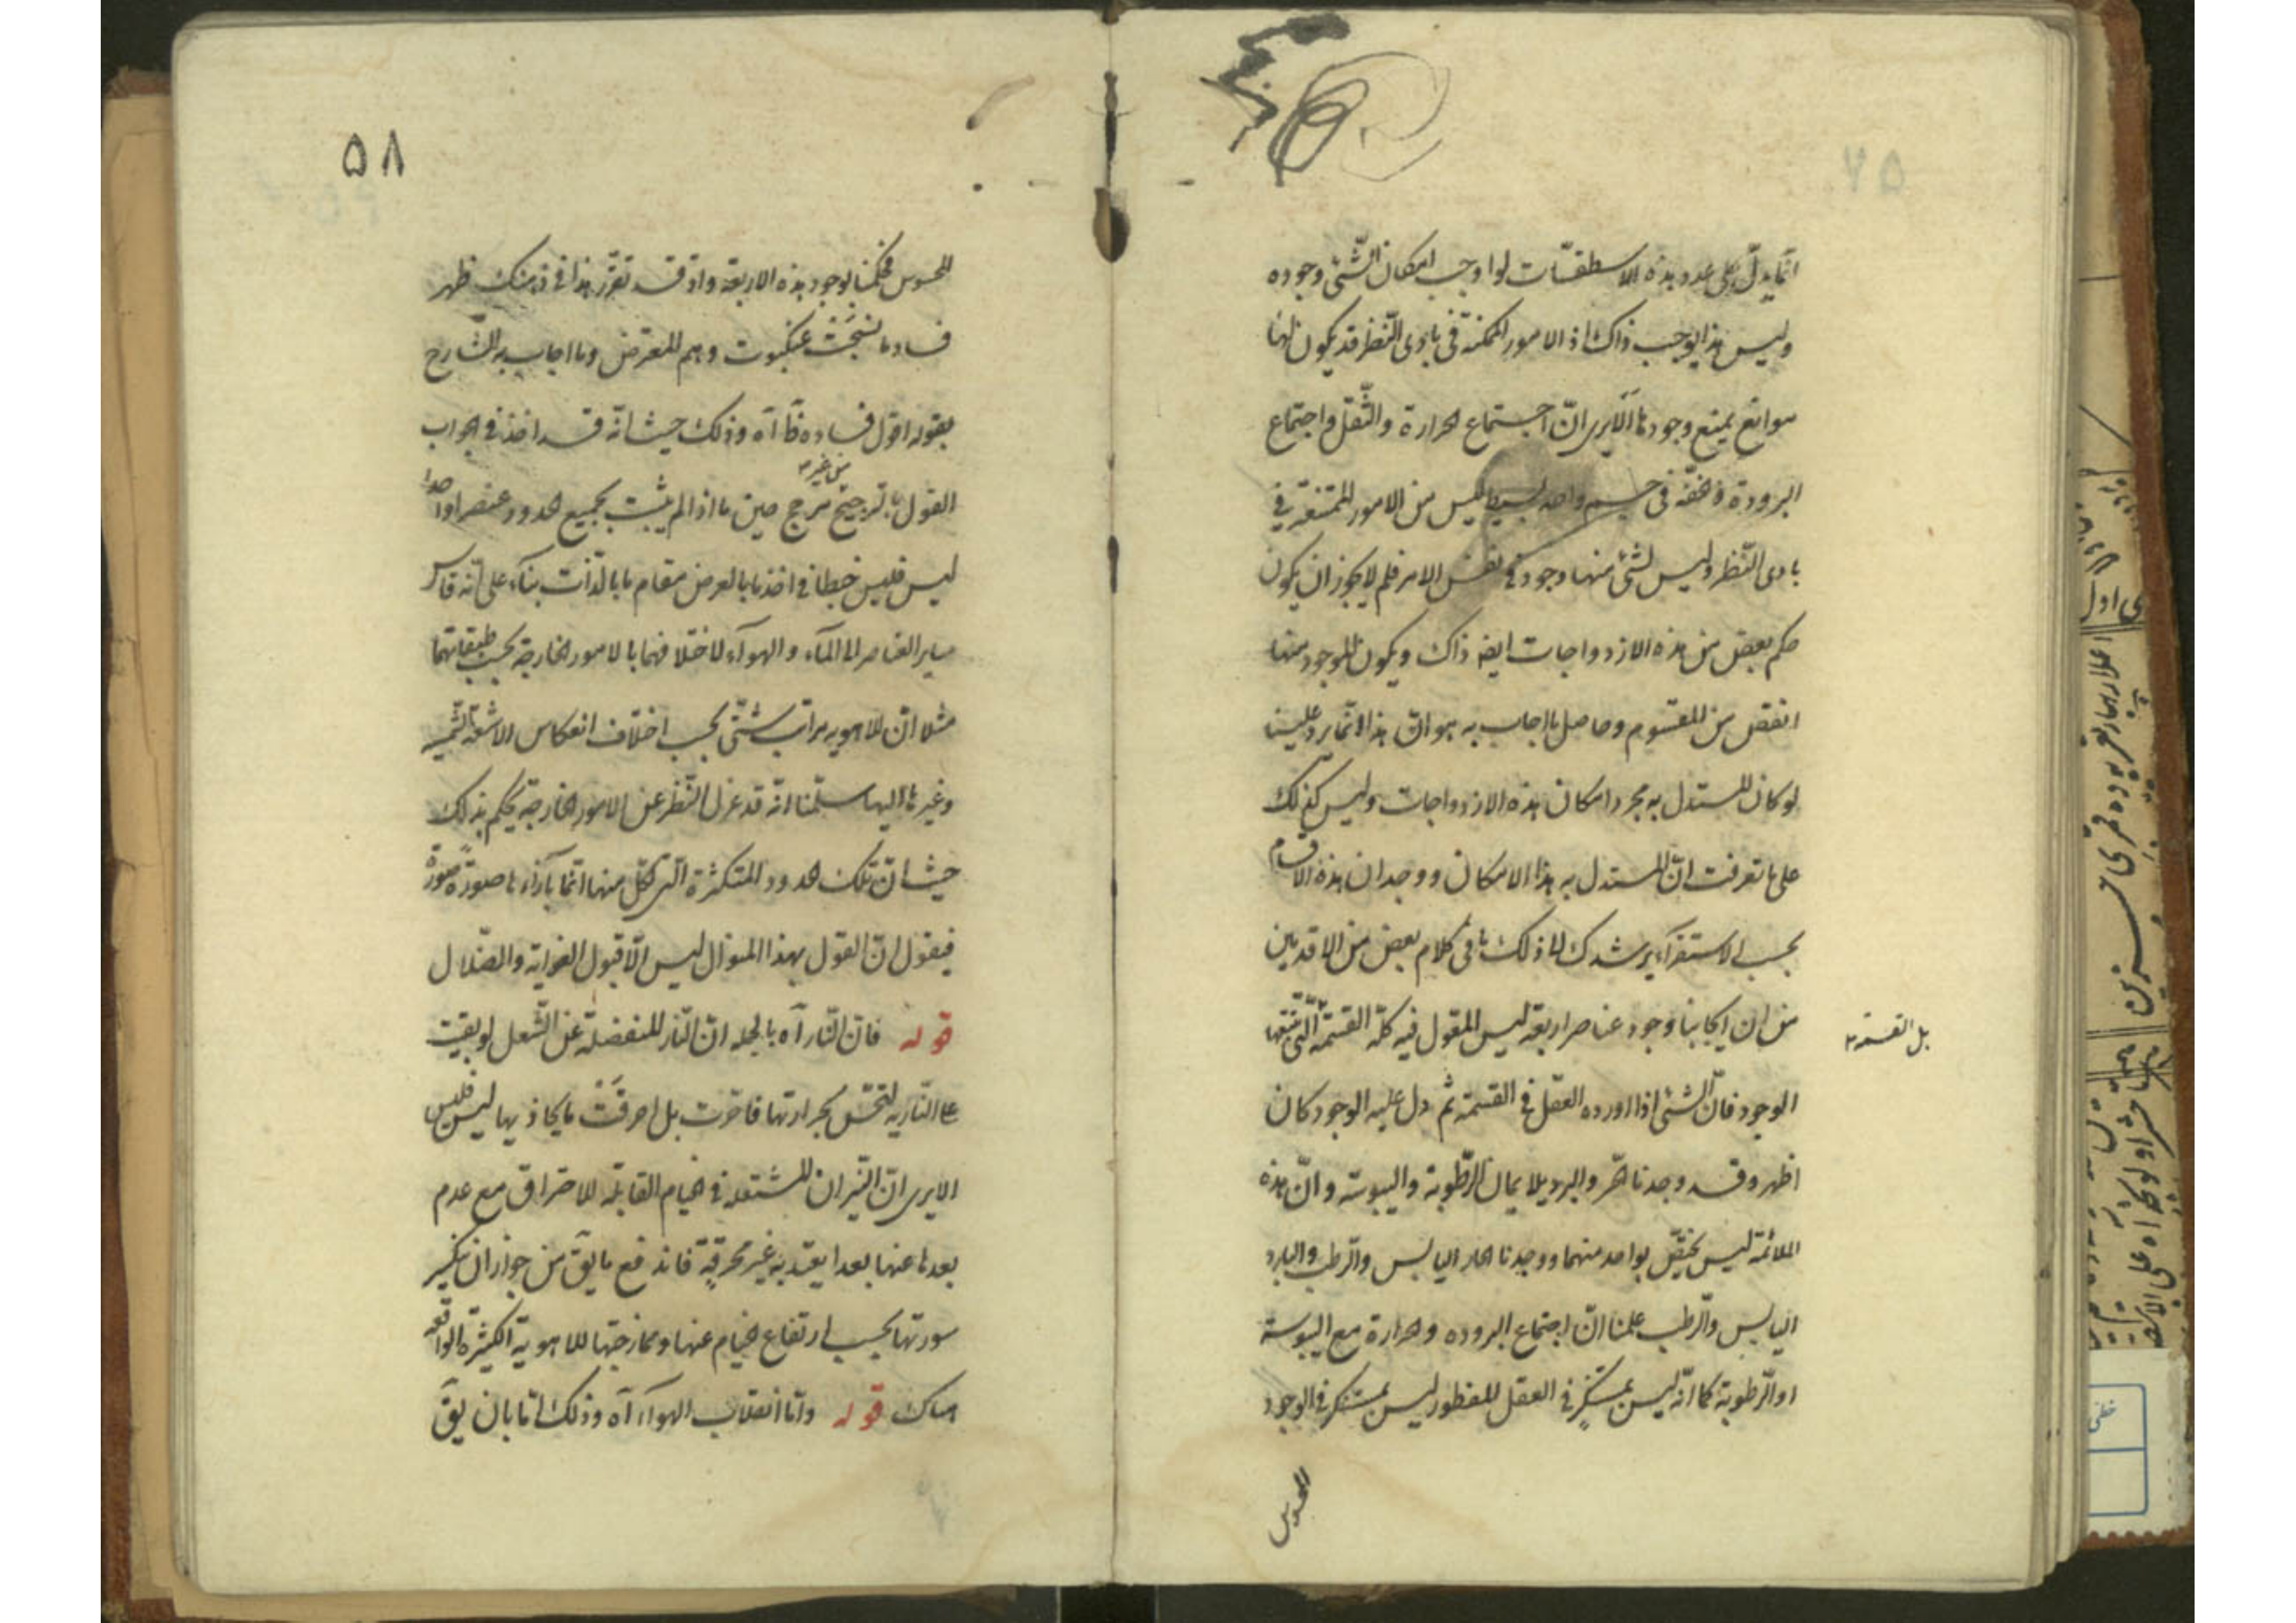 انّما يدلّ على عدد هذه الاسطقسّات لو اوجب امكان الشّئ وجوده
وليس هذا يوجب ذاك اذ الامور الممكنة فى بادى النّظر قد يكون لها
موانع يمنع وجودها الا يرى انّ اجتماع الحرارة والثّقل واجتماع
البرودة والخفّة فى جسم واحد بسيط ليس من الامور الممتنعة فى
بادى النّظر وليس لشئ منها وجود فى نفس الامر فلم لا يجوز ان يكون
حكم بعض من هذه الازدواجات ايضه ذاك ويكون الموجود منها
انقص من المقسوم وحاصل ما اجاب به هو انّ هذا انّما يرد علينا
لو كان المستدل به مجرد امكان هذه الازدواجات وليس كذلك
على ما تعرفت انّ المستدل به هذا الامكان ووجدان هذه الاقسام
بحسب الاستقراء يرشدك الى ذلك ما فى كلام بعض من الاقدمين
من ان ايجابنا وجود عناصر اربعة ليس المقول فيه كلّه القسمة الّتى تتبعها
بل القسمة
الوجود فانّ الشئ اذا اورده العقل فى القسمة ثم دل عليه الوجود كان
اظهر وقد وجدنا الحر والبرد يلايمان الرّطوبة واليبوسة وانّ هذه
الملائمة ليس يختصّ بواحد منهما ووجدنا الحار اليابس والرّطب والبارد
اليابس والرّطب علمنا انّ اجتماع البروده والحرارة مع اليبوسة
او الرّطوبة كما انّه ليس بمستنكر فى العقل المفطور ليس بمستنكر فى الوجود
المحسوس
۵۸
المحسوس فحكمنا لوجود هذه الاربعة واذ قد تقرّر هذا فى ذهنك ظهر
فساد ما نسجت عنكبوت وهم المعترض وما اجاب به الشّارح
بقوله اقول فساده آه وذلك حيث انّه قد اخذ فى الجواب
القول بالترجيح من غير مرجح حين ما اذا لم يثبت لجميع الحدود عنصرا واحدا
ليس فليس خبطا فى اخذ ما بالعرض مقام ما بالذّات بناء على انّه قاس
ساير العناصر الى المآء والهوآء لاختلافهما بالامور الخارجة بحسب طبقاتهما
مثلا انّ للاهويه مراتب شتّى بحسب اختلاف انعكاس الاشعّة الشّمسيه
وغيرها اليها سلّمنا انّه قد عزل النّظر عن الامور الخارجة يحكم بذلك
حيث انّ تلك الحدود المتكثرة الّتى لكلّ منها انّما بازآءها صورة صورة
فيقول انّ القول بهذا المنوال ليس الّا قبول الغواية والضّلال
قوله فانّ النّار آه بالجمله انّ النّار المنفصلة عن الشّعل لو بقيت
على النّاريه لتحسّ بحرارتها فاحرّت بل احرقت ما يحاذيها ليس فليس
الا يرى انّ النّيران المشتعلة فى الخيام القابلة للاحتراق مع عدم
بعدها عنها بعدا يعتدّ به غير محرقة فاندفع ما يقَ من جواز ان ينكسر
سورتها بحسب ارتفاع الخيام عنها وممازجتها للاهوية الكثيرة الواقعه
هناك قوله وامّا انقلاب الهوآء آه وذلك امّا بان يقَ